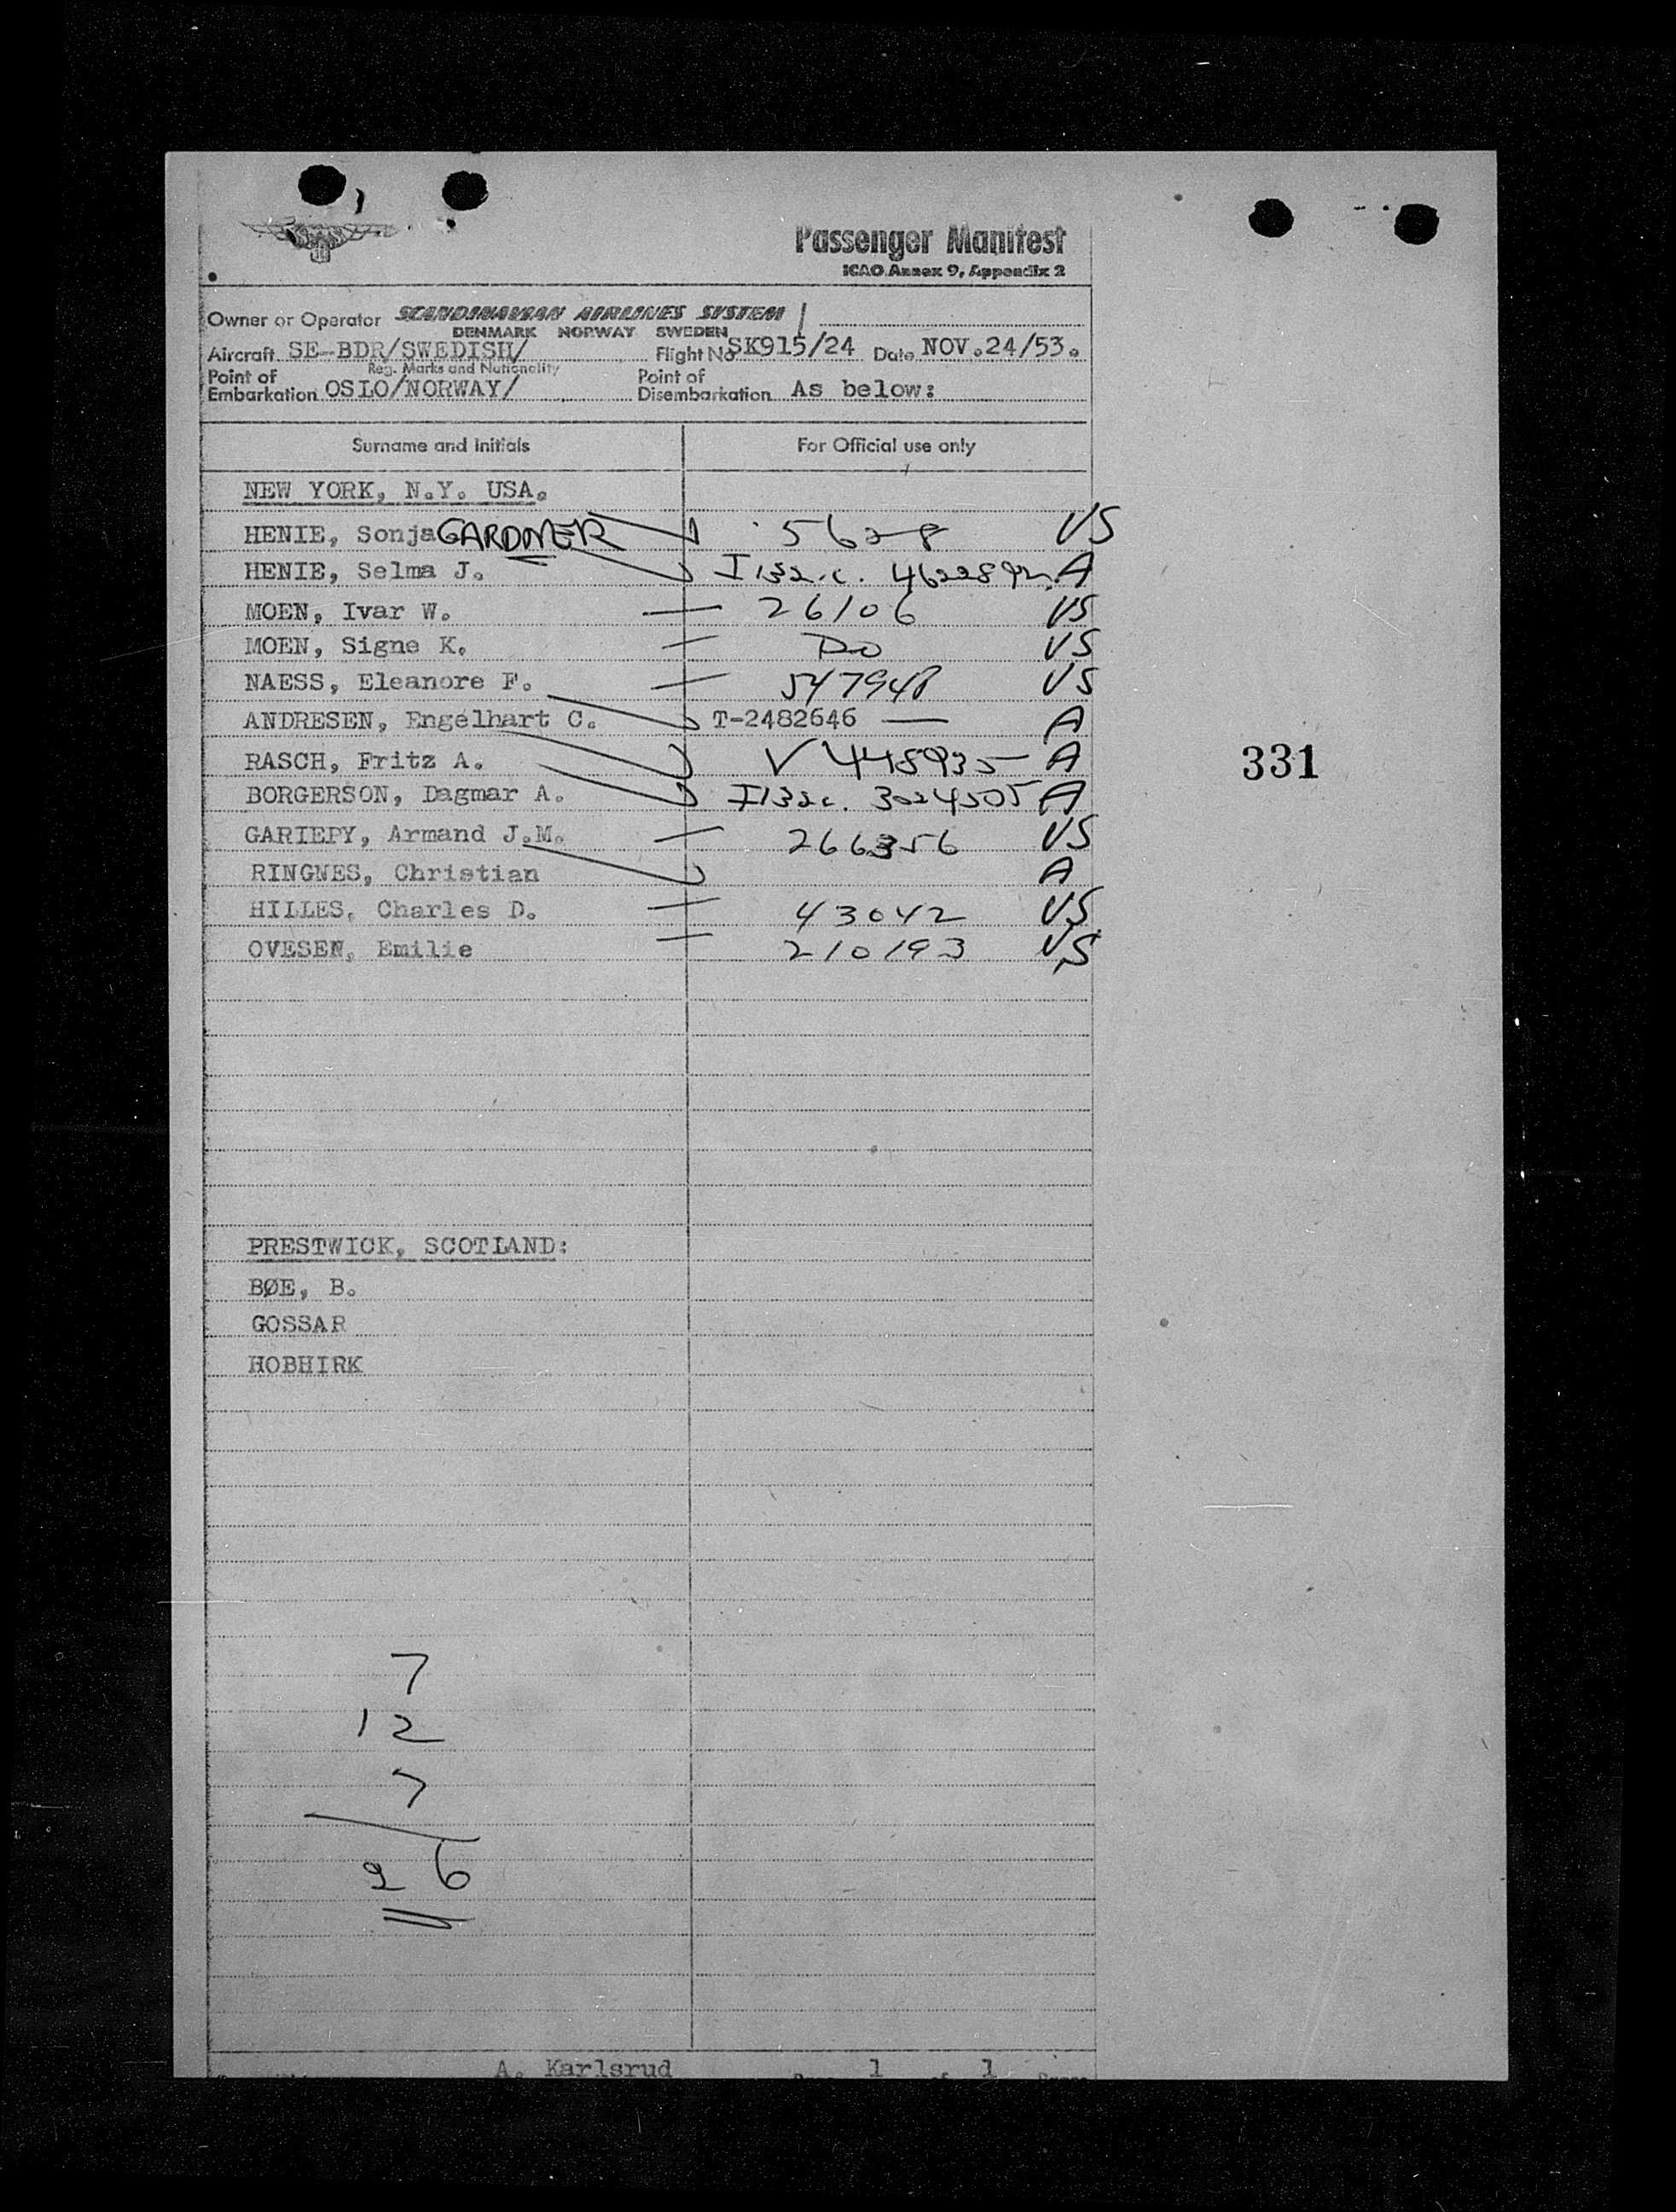 Passenger Manifest
ICAO Annex 9, Appendix 2
Owner or Operator SCANDINAVIAN AIRLINES SYSTEM
DENMARK NORWAY SWEDEN
Aircraft SE-BDR/SWEDISH/ Flight No SK915/24 Date NOV.24/53.
Reg. Marks and Nationality
Point of Embarkation OSLO/NORWAY/ Point of Disembarkation As below:
Surname and Initials For Official use only
NEW YORK, N.Y. USA.
HENIE, Sonja GARDNER 5628 US
HENIE, Selma J. I132.c. A
MOEN, Ivar W. 26106 US
MOEN, Signe K. Do US
NAESS, Eleanore F. 547948 US
ANDRESEN, Engelhart C. T-2482646 — A
RASCH, Fritz A. V 448935 A
BORGERSON, Dagmar A. I132c. 3024505 A
GARIEPY, Armand J.M. 266356 US
331
RINGNES, Christian A
HILLES, Charles D. 43042 US
OVESEN, Emilie 210193 US
PRESTWICK, SCOTLAND:
BØE, B.
GOSSAR
HOBHIRK
7
12
7
26
A. Karlsrud 1 1